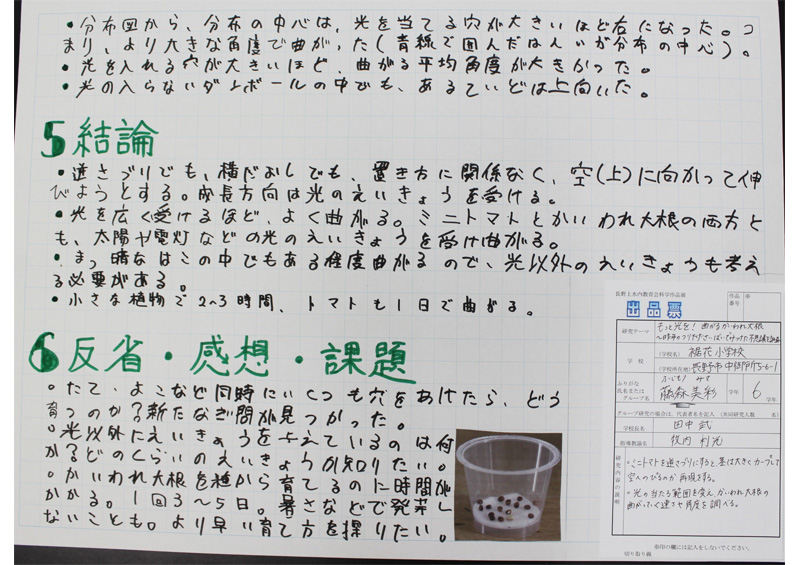 ・分布図から、分布の中心は、光を当てる穴が大きいほど右になった。つ
まり、より大きな角度で曲がった(青線で囲んだはんいが分布の中心)。
・光を入れる穴が大きいほど、曲がる平均角度が大きかった。
・光の入らないダンボールの中でも、あるていどは上向いた。
5 結論
・逆さづりでも、横だおしでも、置き方に関係なく、空(上)に向かって伸
びようとする。成長方向は光のえいきょうを受ける。
・光を広く受けるほど、よく曲がる。ミニトマトとかいわれ大根の両方と
も、太陽や電灯などの光のえいきょうを受け曲がる。
・まっ暗なはこの中でもある程度曲がるので、光以外のえいきょうも考え
る必要がある。
・小さな植物で2~3時間、トマトも1日で曲がる。
6 反省・感想・課題
○たて、よこなど同時にいくつも穴をあけたら、どう
育つのか?新たなぎ問が見つかった。
○光以外にえいきょうを与えているのは何
か?どのくらいのえいきょうか知りたい。
○かいわれ大根を種から育てるのに時間が
かかる。1回3~5日。暑さなどで発芽し
ないことも。より早い育て方を探りたい。
長野上水内教育会科学作品展
出品票
作品番号
※
研究テーマ
もっと光を!曲がるかいわれ大根
学校
(学校名) 裾花小学校
(学校所在地) 長野市中御所5-6-1
ふりがな
氏名または
グループ名
ふじもり みさ
藤森美彩
学年
6
学年
グループ研究の場合は、代表者名を記入 (共同研究人数 名)
学校長名
田中 武
指導教諭名
牧内 利光
研究内容の説明
・ミニトマトを逆さづりにすると、茎は大きくカーブして
空へのびるのか再現する。
・光の当たる範囲を変え、かいわれ大根の
曲がっていく速さや角度を調べる。
※印の欄には記入をしないでください。
切り取り線